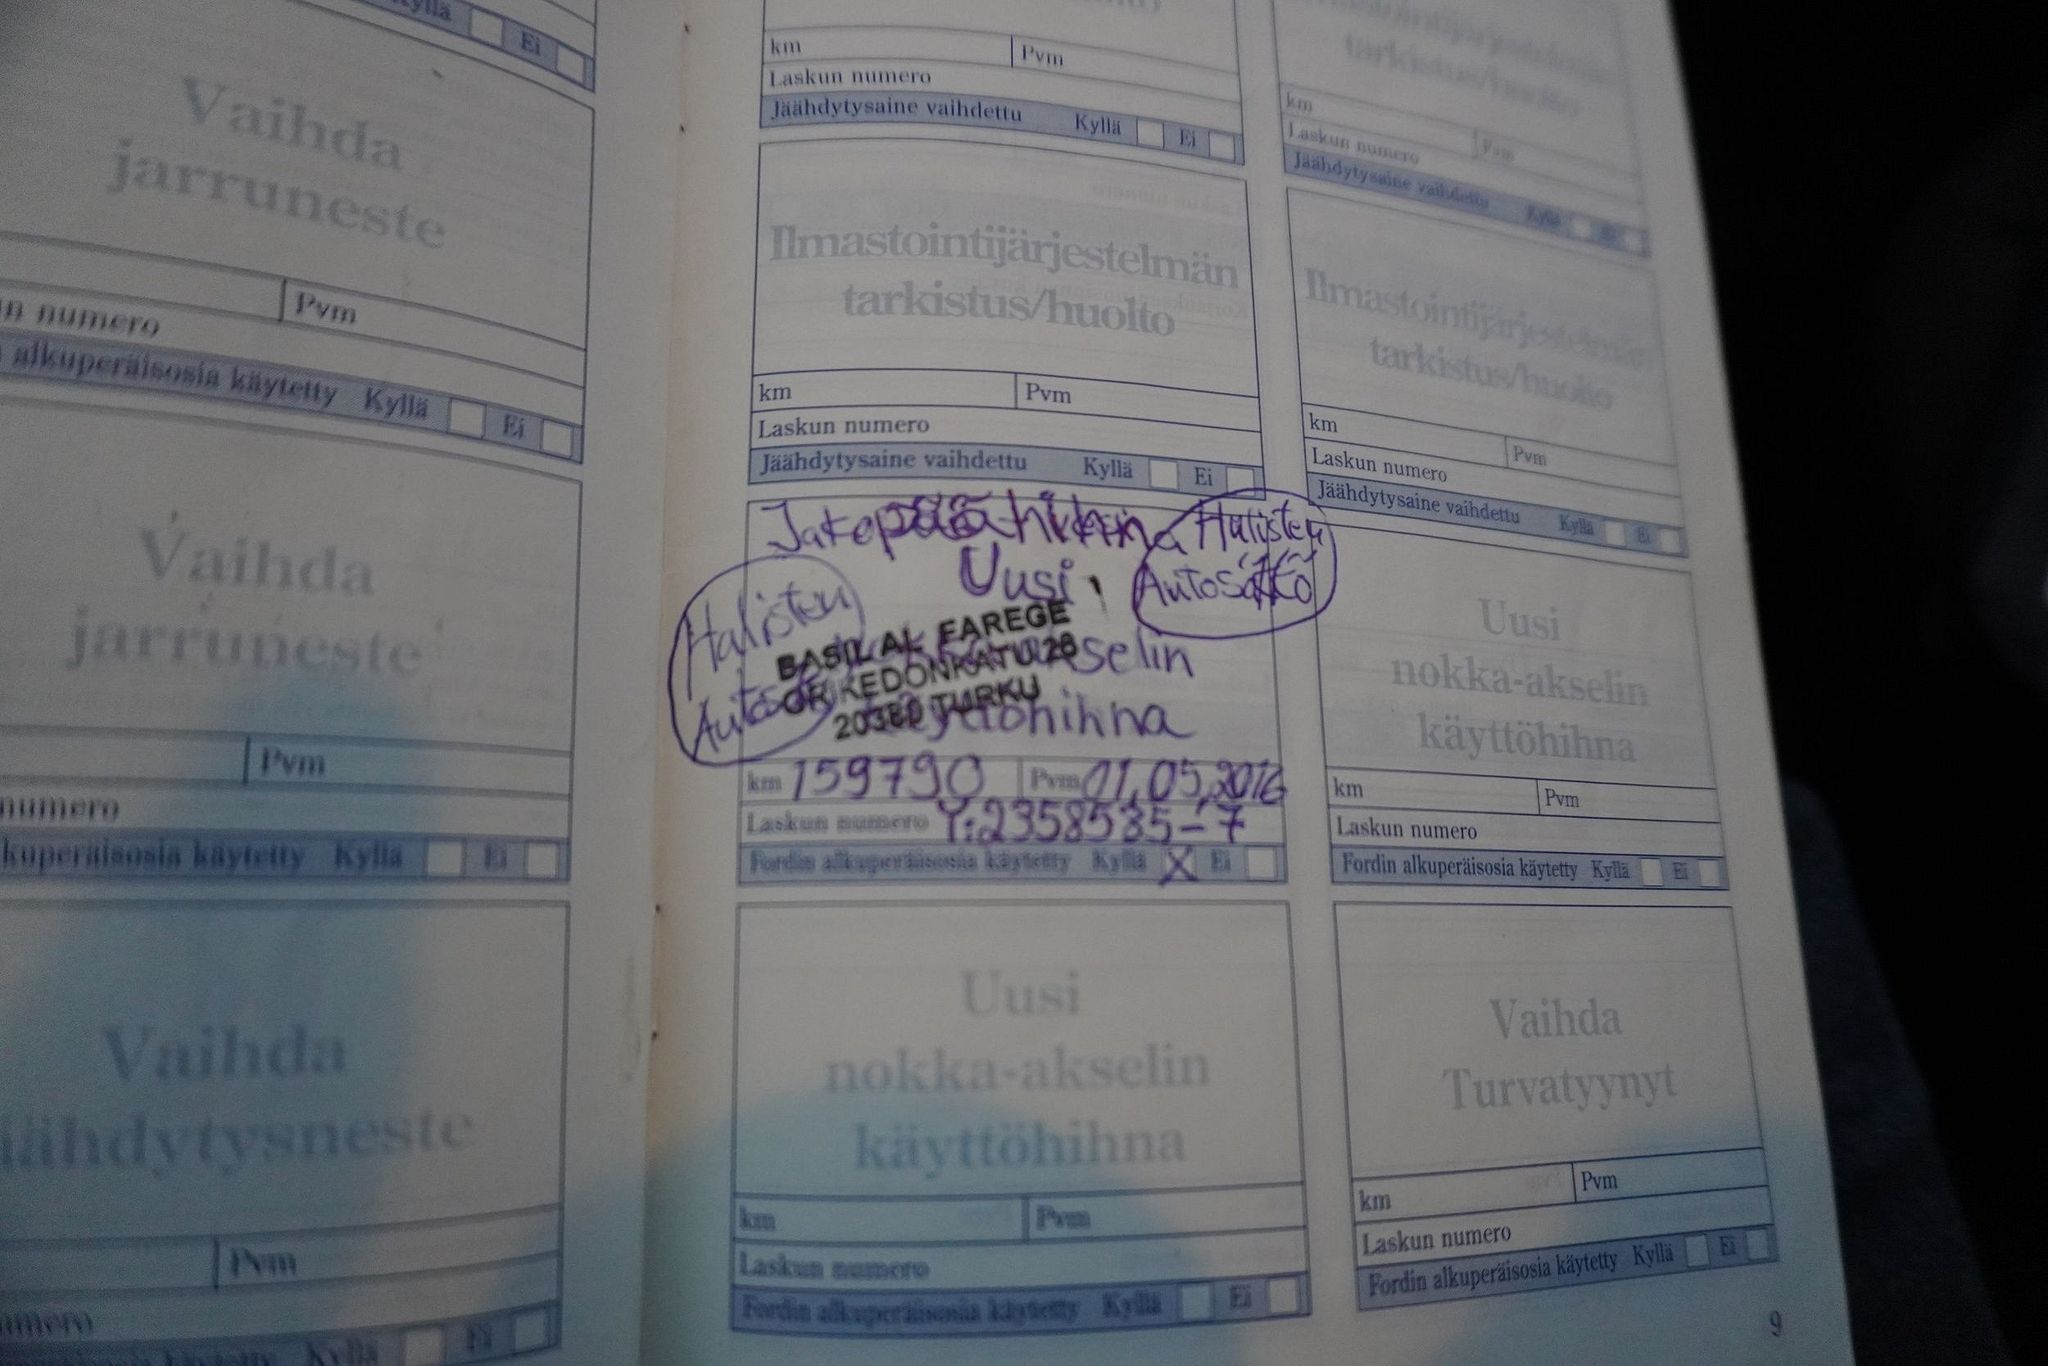 Kyllä Ei
Vaihda
jarruneste
Pvm
numero
alkuperäisosia käytetty Kyllä Ei
Vaihda
jarruneste
Pvm
numero
käytetty Kyllä Ei
Vaihda
Pvm
Ei
km Pvm
Laskun numero
Jäähdytysaine vaihdettu Kyllä Ei
Ilmastointijärjestelmän
tarkistus/huolto
km Pvm
Laskun numero
Jäähdytysaine vaihdettu Kyllä Ei
Jakopään hihna Halisten
Autosähkö
Uusi
Halisten
BASIL AL FAREGE
ORIKEDONKATU 26
20380 TURKU
käyttöhihna
km 159790 Pvm 01.05.2016
Laskun numero Y:2358535-7
Fordin alkuperäisosia käytetty Kyllä X Ei
Uusi
nokka-akselin
käyttöhihna
km Pvm
Laskun numero
Fordin alkuperäisosia käytetty Kyllä Ei
tarkistus/huolto
km Pvm
Laskun numero
Jäähdytysaine vaihdettu Kyllä Ei
Ilmastointijärjestelmän
tarkistus/huolto
km Pvm
Laskun numero
Jäähdytysaine vaihdettu Kyllä Ei
Uusi
nokka-akselin
käyttöhihna
km Pvm
Laskun numero
Fordin alkuperäisosia käytetty Kyllä Ei
Vaihda
Turvatyynyt
km Pvm
Laskun numero
Fordin alkuperäisosia käytetty Kyllä Ei
9